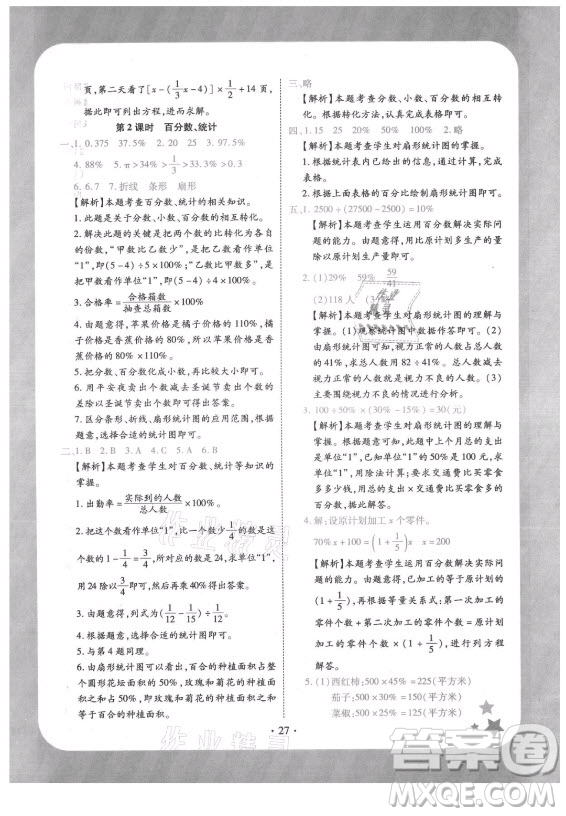 页,第二天看了[x-(1/3x-4)]×1/2+14页,
据此即可列出方程,进而求解。
第2课时 百分数、统计
一、1. 0.375 37.5 20 25 97.5%
4. 88% 5. π>34%>1/3>0.3
6. 6.7 7. 折线 条形 扇形
【解析】本题考查百分数、统计的相关知识。
1. 此题是关于分数、小数、百分数的转化。
2. 解决此题的关键是把两个数的比转化为各自
的份数,“甲数比乙数少”,是把乙数看作单位
“1”,即(5-4)÷5×100%;“乙数比甲数多”,是
把甲数看作单位“1”,即(5-4)÷4×100%。
3. 合格率=合格箱数/抽查总箱数×100%
4. 由题意得,苹果价格是橘子价格的80%,橘
子价格比苹果价格高10%,把橘子价格看作
单位“1”,则苹果价格是80%÷(1+10%)。
5. 把小数、百分数化成分数比较即可。
6. 用平安夜卖出的个数减去圣诞节卖出的个数的
差除以圣诞节卖出的个数即可。
7. 区分条形、折线、扇形统计图的应用范围,根
据题意,选择合适的统计图即可。
二、1. B 2. A 3. C 4. A 5. A 6. B
【解析】本题考查学生对百分数、统计等知识的
掌握。
1. 出勤率=实际到的人数/总人数×100%
2. 把这个数看作单位“1”,比它少1/4,就是这
个数的1-1/4=3/4,所对应的数是24,求单位“1”,
用24除以3/4,然后再乘40%即可得出答案。
3. 由题意得,列式为(1/12-1/15)÷1/12。
4. 根据题意,选择合适的统计图即可。
5. 与第4题同理。
6. 由扇形统计图可以看出,百合的种植面积占整
个圆形花坛面积的1/2,即玫瑰和菊花的种植面
积和占1/2,即玫瑰和菊花的种植面积和等于百
合的种植面积。
三、略
【解析】本题考查分数、小数、百分数的互相转
化。根据转化方法,认真完成表格即可。
四、1. 15 25 20% 100% 2. 略
【解析】本题考查学生对扇形统计图的掌握。
1. 根据统计表内已给出的信息,进行计算,完成
统计表即可。
2. 根据上面表格的百分比绘制扇形统计图即可。
五、1. 2500÷(27500-2500)=10%
【解析】本题考查学生运用百分数解决实际问
题的能力。由题意,用比原计划多的生产量除
以原计划生产量即可。
2. (1)29% 59% 59/41
(2)118人 (3)
【解析】本题考查学生对扇形统计图的理解与
掌握。(1)观察统计图中数据作答即可。
(2)由扇形统计图可知,视力不良的人数占总
人数的41%,求总人数用82÷41%。总人数减去
视力不良的人数就是视力正常的人数。(3)
主要围绕视力不良的情况进行分析。
3. 100÷50%×(30%-15%)=30(元)
【解析】本题考查学生对扇形统计图的理解与
掌握。由扇形统计图中上个月总的支出
是单位“1”,买书支出占总的50%,求单位“1”
的量,用除法计算。要求交通费比买零食
多多少钱,用总的支出×交通费比买零食多的
百分数即可。
4. 解:设原计划加工x个零件。
70%x+100=(1+1/5)x x=200
【解析】本题考查学生运用百分数解决实际问
题的能力。由题意得,已加工的是原计划的
(1+1/5),再根据等量关系式:第一次加工的
零件个数+第二次加工的零件个数=原计划
加工的零件个数×(1+1/5),进行列方程
解答。
5. (1)西红柿:500×45%=225(平方米)
茄子:500×30%=150(平方米)
菜椒:500×25%=125(平方米)
·27·
作业精灵
作业精灵
作业精灵
答案圈
MXQE.COM